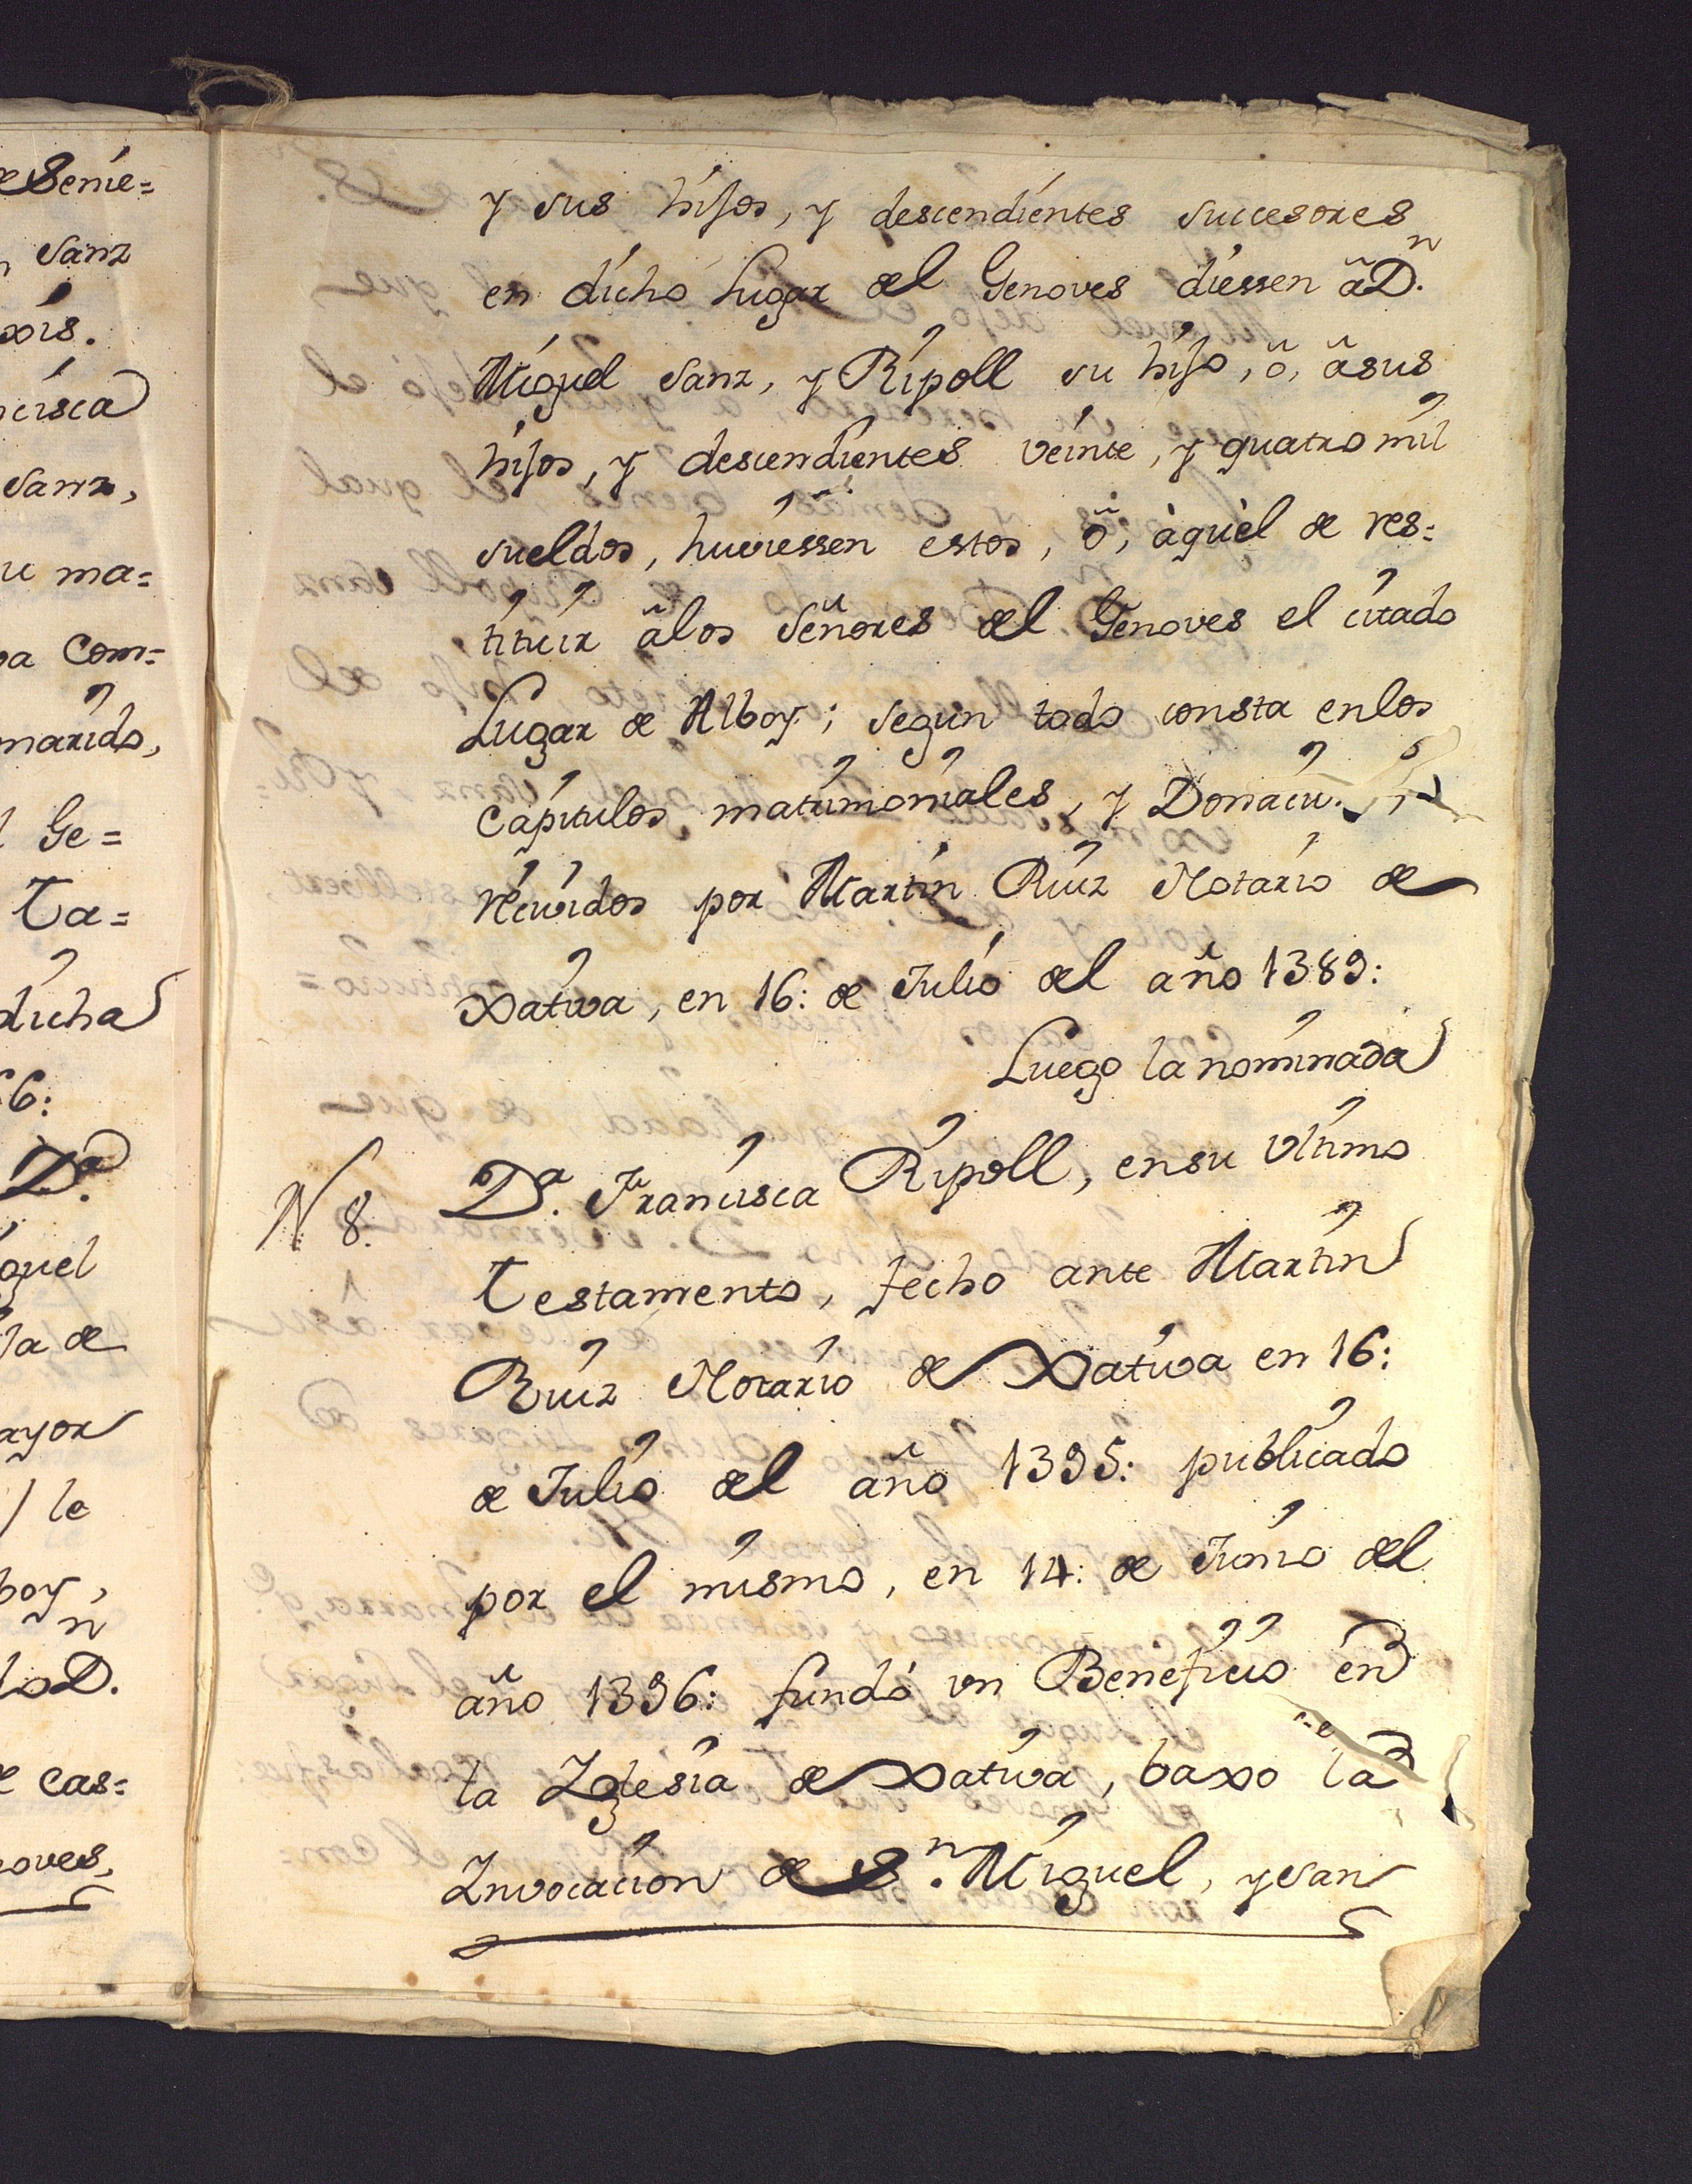 y sus hijos, y descendientes succesores
en dicho Lugar del Genoves diessen à Dn.
Miguel Sanz, y Ripoll su hijo, ò, à sus
hijos, y descendientes veinte, y quatro mil
sueldos, huviessen estos, ò, àquel de res=
tituir à los Señores del Genoves el citado
Lugar de Alboy; segun todo consta en los
Capitulos matrimoniales, y
recividos por Martin Ruiz Notario de
Xativa, en 16: de Julio del año 1389:
Luego la nominada
N 8. Da. Francisca Ripoll, en su Vltimo
Testamento, fecho ante Martin
Ruiz Notario de Xativa en 16:
de Julio del año 1395: publicado
por el mismo, en 14: de Junio del
año 1396: fundó vn Beneficio en
la Iglesia de Xativa, baxo la
Invocacion de Sn. Miguel, y San